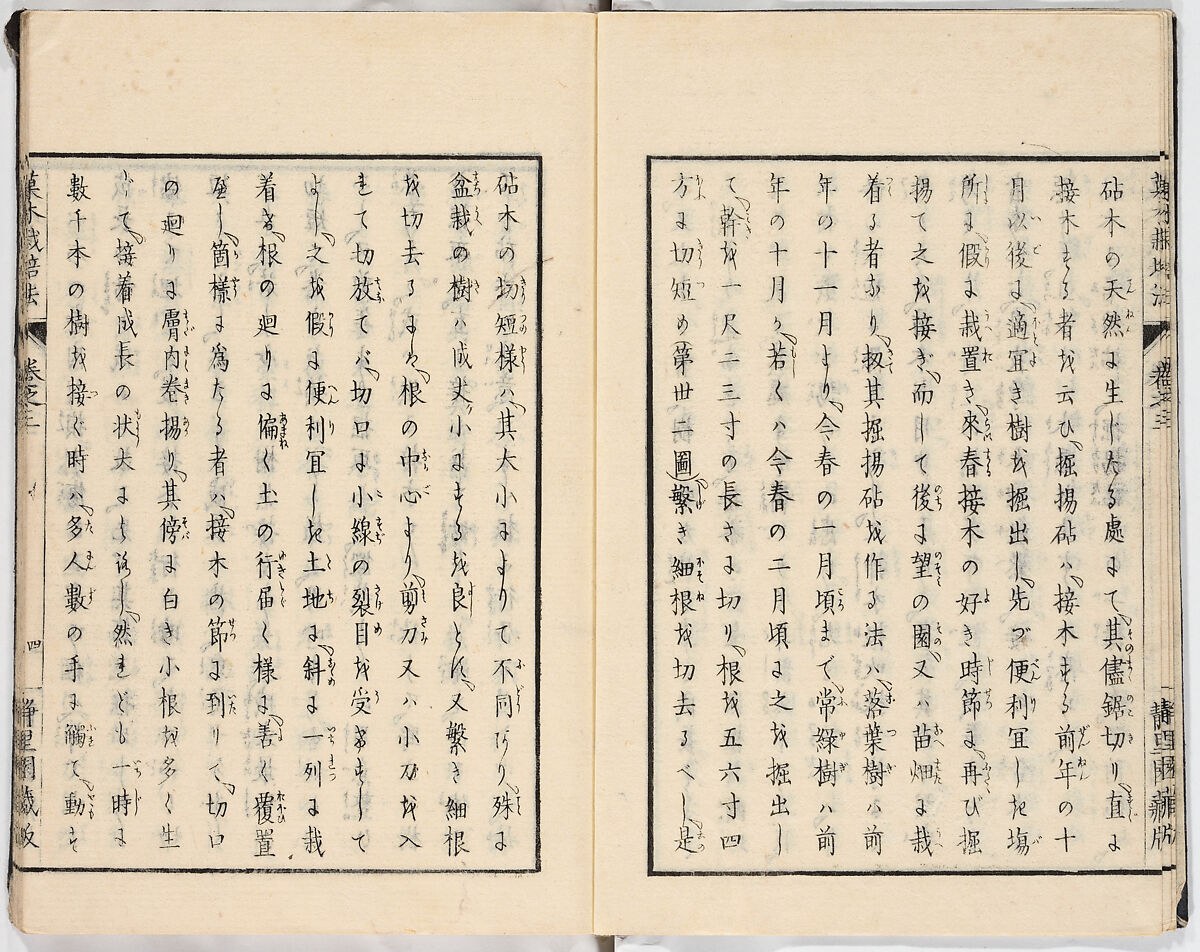 砧木の天然に生じたる處にて其儘鋸切り直に
接木する者を云ひ掘揚砧ハ接木する前年の十
月以後に適宜き樹を掘出し先づ便利宜しき塲
所に假に栽置き來春接木の好き時節に再び掘
揚て之を接ぎ而して後に望の園又ハ苗畑に栽
着る者なり扨其掘揚砧を作る法ハ落葉樹ハ前
年の十一月より今春の一月頃まで常綠樹ハ前
年の十月か若くハ今春の二月頃に之を掘出し
て幹を一尺二三寸の長さに切り根を五六寸四
方に切短め第丗二圖繁き細根を切去るべし是
砧木の切短様ハ其大小によりて不同あり殊に
盆栽の樹ハ成丈小にするを良とす又繁き細根
を切去るにハ根の中心より剪刀又ハ小刀を入
れて切放てバ切口に小線の裂目を受けずして
よし之を假に便利宜しき土地に斜に一列に栽
着け根の廻りに偏く土の行届く様に善く覆置
べし箇樣に爲たる者ハ接木の節に到りて切口
の廻りに膚内巻揚り其傍に白き小根を多く生
じて接着成長の状大によろし然れども一時に
數千本の樹を接ぐ時ハ多人數の手に觸て動も
菓木栽培法
卷之三
四
靜里園藏版